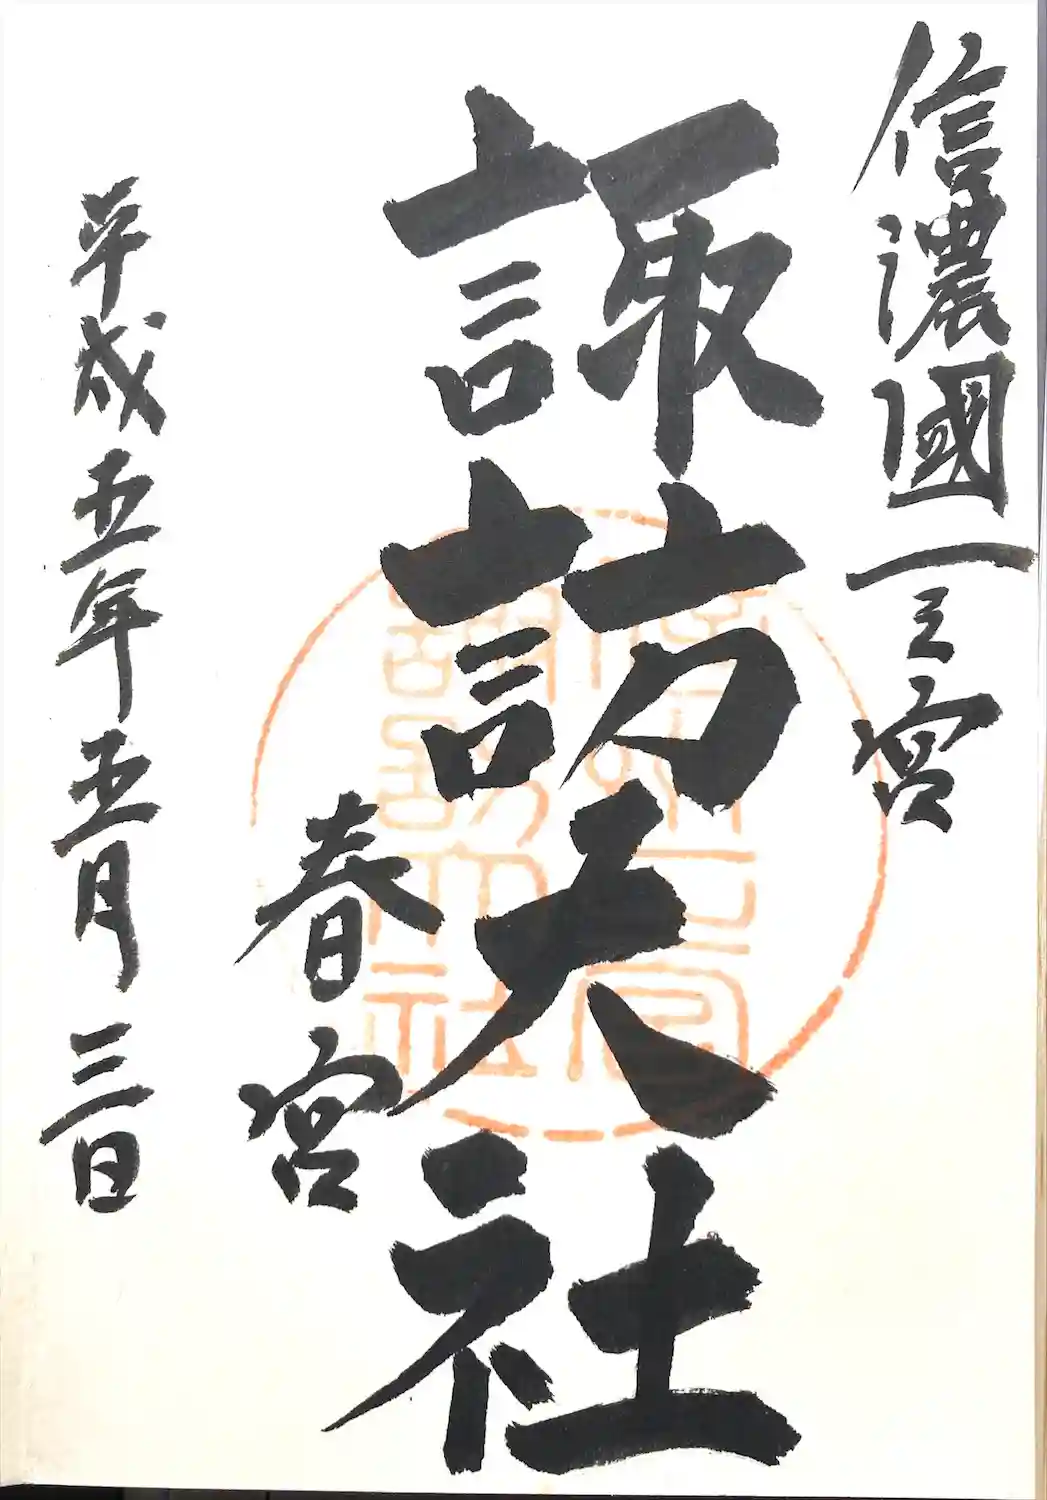 信濃國一之宮
諏訪大社
春宮
平成五年五月三日